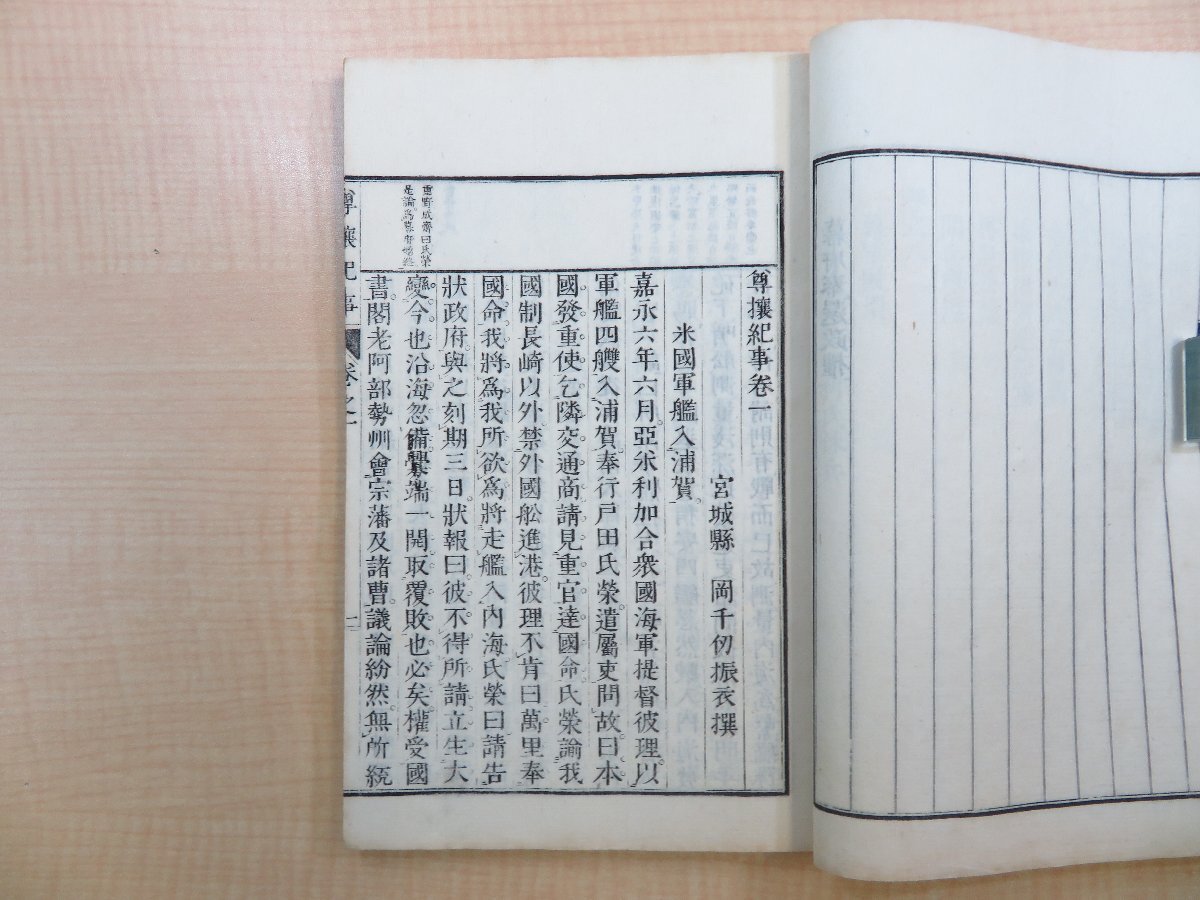 尊攘紀事卷一
宮城縣 岡千仞振衣撰
米國軍艦入浦賀。
嘉永六年六月。亞米利加合衆國海軍提督彼理。以
軍艦四艘入浦賀奉行戸田氏榮遣屬吏問故曰本
國發重使乞隣交通商請見重官達國命氏榮諭我
國制長崎以外禁外國舩進港。彼理不肯曰萬里奉
國命我將爲我所欲爲將走艦入內海氏榮曰請告
狀政府與之刻期三日狀報曰彼不得所請立生大
變今也沿海忽備釁端一開取覆敗也必矣權受國
書。閣老阿部勢州會宗藩及諸曹議論紛然。無所統
重野成齋曰氏榮
是論爲幕府
尊攘紀事
卷之一